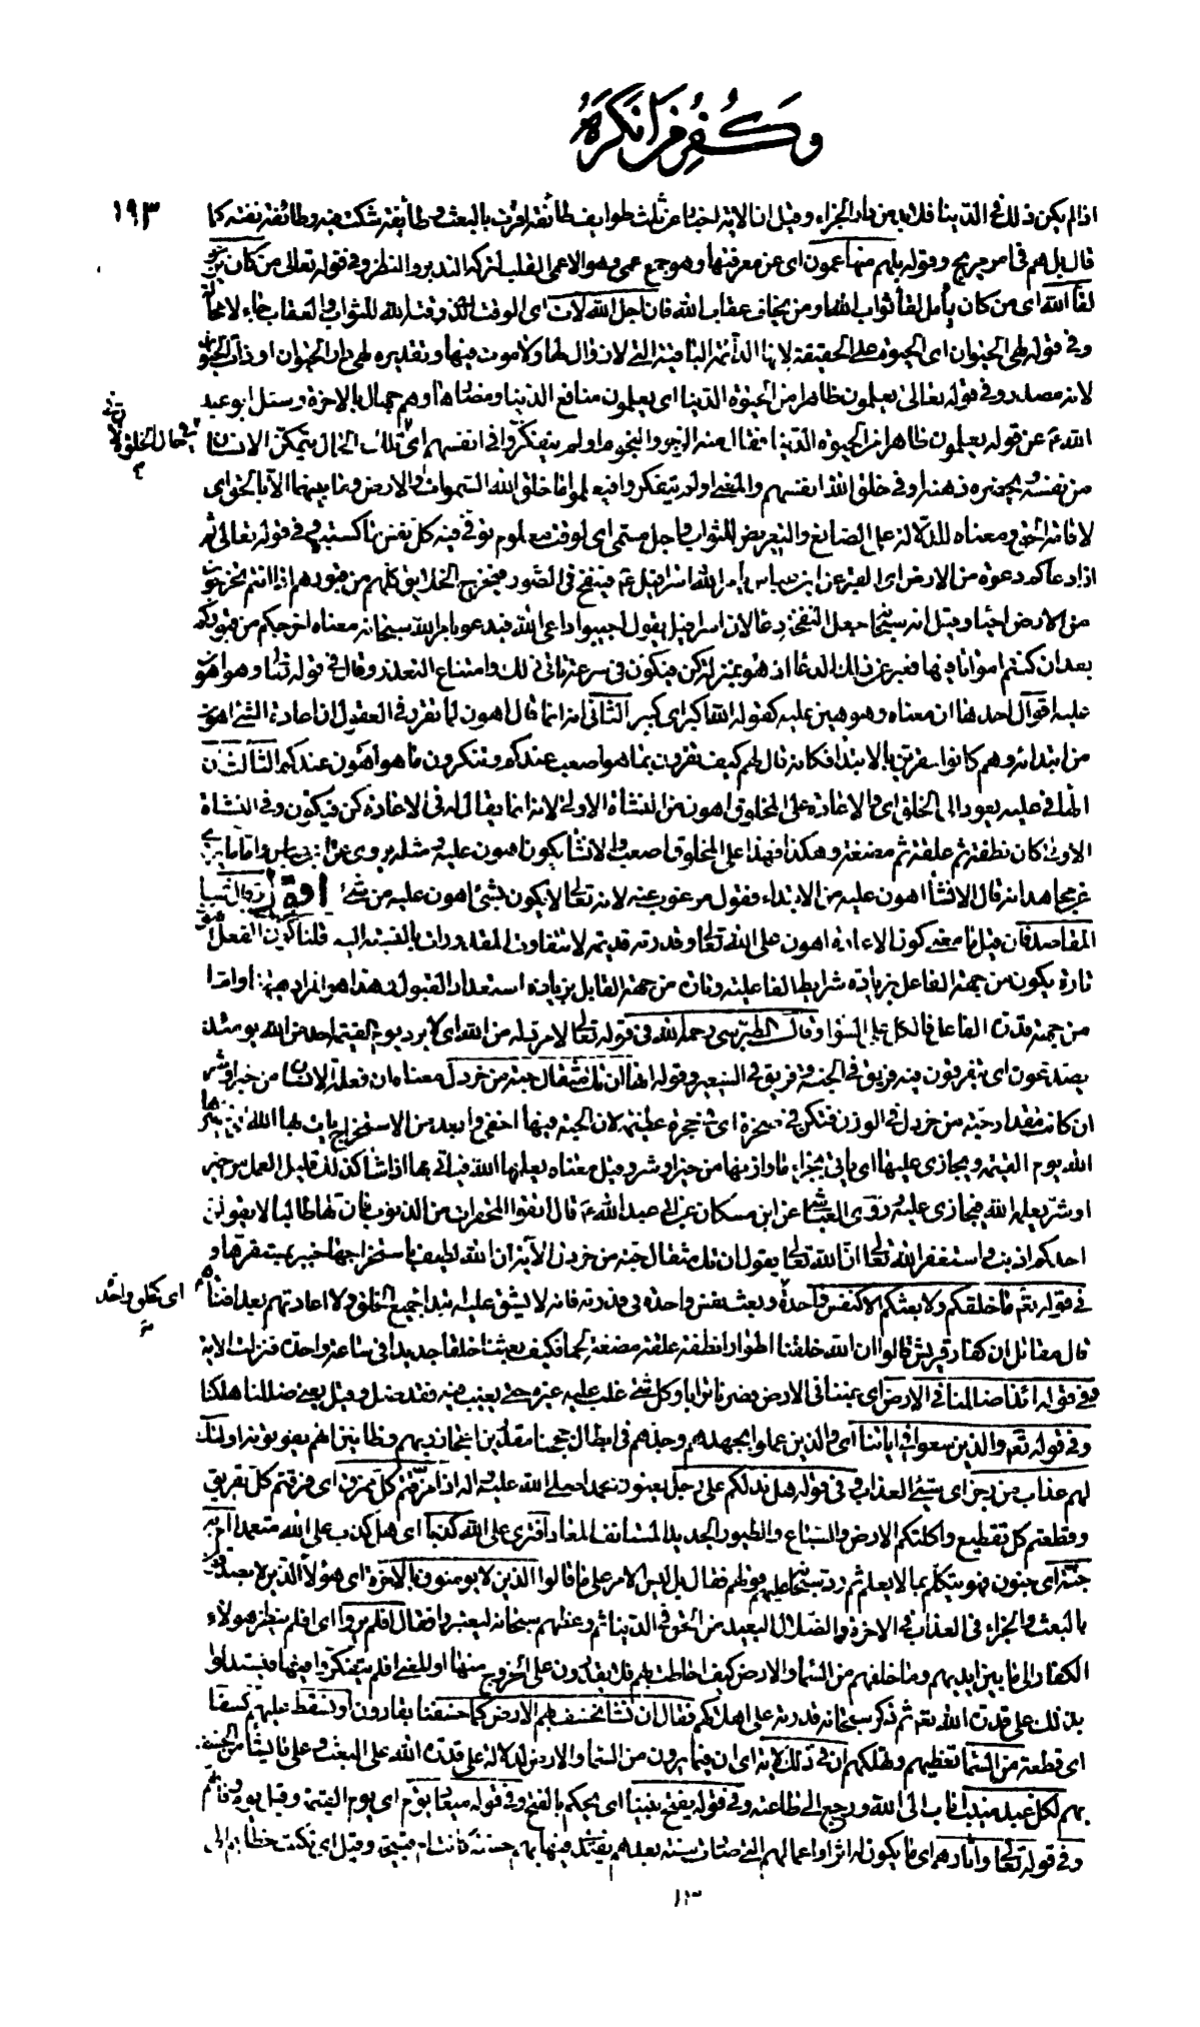 وكفر من انكره
١٩٣
اذا لم يكن ذلك في الدنيا فلا بد من دار الجزاء وقيل ان الاية اخبار عن ثلث طوايف طائفة اقرت بالبعث وطائفة شكت فيه وطائفة نفته كما
قال بل هم في امر مريج وقوله بل هم منها عمون اى عن معرفتها وهو جمع عمى وهو الاعمى القلب لتركه التدبر والنظر وفي قوله تعالى من كان يرجو
لقاء الله اى من كان يأمل لقاء ثواب الله او من يخاف عقاب الله فان اجل الله لات اى الوقت الذى وقته الله للثواب والعقاب جاء لا محالة
وفي قوله لهى الحيوان اى الحيوة على الحقيقة لانها الدائمة الباقية التى لا زوال لها ولا موت فيها وتقديره لهى دار الحيوان او ذات الحيوان
لانه مصدر وفي قوله تعالى يعلمون ظاهرا من الحيوة الدنيا اى يعلمون منافع الدنيا ومضارها وهم جهال بالاخرة وسئل ابو عبد
الله ع عن قوله يعلمون ظاهرا من الحيوة الدنيا فقال منه الزجر والنجوم اولم يتفكروا في انفسهم اى في تلك الحال يتمكن الانسان
في حال الخلوة لان في
من نفسه ويحضره ذهنه او في خلق الله انفسهم والمعنى اولم يتفكروا فيعلموا ما خلق الله السموات والارض وما بينهما الا بالحق اى
لاقامة الحق ومعناه للدلالة على الصانع والتعريض للثواب واجل مسمى اى لوقت معلوم توفى فيه كل نفس بما كسبت وفي قوله تعالى ثم
اذا دعاكم دعوة من الارض اى القبر عن ابن عباس يأمر الله اسرافيل ع فينفخ في الصور فيخرج الخلايق كلهم من قبورهم اذا انتم تخرجون
من الارض احياء وقيل انه سبحانه جعل النفخة دعاء لان اسرافيل يقول اجيبوا داعى الله فيدعو بامر الله سبحانه معناه اخرجكم من قبوركم
بعد ان كنتم امواتا فيها فعبر عن ذلك الدعاء اذ هو بمنزلة كن فيكون في سرعة تاتى ذلك وامتناع التعذر وقال في قوله تعالى وهو اهون
عليه اقوال احدها ان معناه وهو هين عليه كقوله الله اكبر اى كبير الثانى انه انما قال اهون لما تقرر في العقول ان اعادة الشئ اهون
من ابتدائه وهم كانوا مقرين بالابتداء فكانه قال لهم كيف تقرون بما هو اصعب عندكم وتنكرون ما هو اهون عندكم الثالث ان
الهاء في عليه يعود الى الخلق اى والاعادة على المخلوق اهون من النشاة الاولى لانه انما يقال له في الاعادة كن فيكون وفي النشاة
الاولى كان نطفة ثم علقة ثم مضغة وهكذا فهذا على المخلوق اصعب والانشاء يكون اهون عليه ومثله يروى عن ابن عباس واما ما يروى
عن مجاهد انه قال الانشاء اهون عليه من الابتداء فقول مرغوب عنه لانه تعالى لا يكون شئ اهون عليه من شئ اقول وقال في شرح
المقاصد فان قيل ما معنى كون الاعادة اهون على الله تعالى وقدرته قديمة لا تتفاوت المقدورات بالنسبة اليه قلنا كون الفعل اهون
تارة يكون من جهة الفاعل بزيادة شرايط الفاعلية وتارة من جهة القابل بزيادة استعداد القبول وهذا هو المراد هيهنا واما
من جهة قدرة الفاعل فالكل على السواء وقال الطبرسى رحمه الله في قوله تعالى لا مرد له من الله اى لا يرد يوم القيمة احد من الله يومئذ
يصدعون اى يتفرقون فيه فريق في الجنة وفريق في السعير وقوله انها ان تك مثقال حبة من خردل معناه ان فعلة الانسان من خير او شر
ان كانت مقدار حبة من خردل في الوزن فتكن في صخرة اى في حجرة عظيمة لان الحبة فيها اخفى وابعد من الاستخراج يات بها الله اى يحضرها
الله يوم القيمة ويجازى عليها اى يأتى بجزاء ما وازنها من خير او شر وقيل معناه يعلمها الله فياتى بها اذا شاء كذلك قليل العمل من خير
او شر يعلمه الله فيجازى عليه وروى العياشى عن ابن مسكان عن ابى عبد الله ع قال اتقوا المحقرات من الذنوب فان لها طالبا لا يقولن
احدكم اذنب واستغفر الله تعالى ان الله تعالى يقول ان تك مثقال حبة من خردل الآية ان الله لطيف باستخراجها خبير بمستقرها و
في قوله تع ما خلقكم ولا بعثكم الا كنفس واحدة اى كخلق واحد وبعث نفس واحدة في قدرته فانه لا يشق عليه ابتداء جميع الخلق ولا اعادتهم بعد افنائهم
قال مقاتل ان كفار قريش قالوا ان الله خلقنا اطوارا نطفة علقة مضغة لحما فكيف يبعثنا خلقا جديدا في ساعة واحدة فنزلت الاية
وفي قوله ائذا ضللنا في الارض اى غيبنا في الارض فصرنا ترابا وكل شئ غلب عليه غيره حتى يغيب فيه فقد ضل وقيل يعنى ضللنا هلكنا
وفي قوله تع والذين سعوا في اياتنا اى والذين عملوا بجهدهم وجدهم في ابطال حججنا مقدرين اعجاز ربهم وظانين انهم يفوتونه اولئك
لهم عذاب من رجز اى سيئ العذاب وفي قوله هل ندلكم على رجل يعنون محمدا صلى الله عليه واله اذا مزقتم كل ممزق اى فرقتم كل تفريق
وقطعتم كل تقطيع واكلتكم الارض والسباع والطيور والجديد المستانف المعاد افترى على الله كذبا اى هل كذب على الله متعمدا ام به
جنة اى جنون فهو يتكلم بما لا يعلم ثم رد سبحانه عليهم قولهم فقال بل ليس الامر على ما قالوا الذين لا يؤمنون بالاخرة اى هؤلاء الذين لا يصدقون
بالبعث والجزاء في العذاب في الاخرة والضلال البعيد من الحق في الدنيا ثم وعظهم سبحانه ليعتبروا فقال افلم يروا اى افلم ينظر هؤلاء
الكفار الى ما بين ايديهم وما خلفهم من السماء والارض كيف احاطت بهم فلا يقدرون على الخروج منها او المعنى افلم يتفكروا فيها فيستدلوا
بذلك على قدرة الله تع ثم ذكر سبحانه قدرته على اهلاكهم فقال ان نشا نخسف بهم الارض كما خسفنا بقارون او نسقط عليهم كسفا
اى قطعة من السماء تغطيهم وتهلكهم ان في ذلك لاية اى ان فيما يرون من السماء والارض لدلالة على قدرة الله على البعث وعلى ما يشاء من الخسف
بهم لكل عبد منيب اناب الى الله ورجع الى طاعته وفي قوله يفتح بيننا اى يحكم بالفتح وفي قوله ميعاد يوم اى يوم القيمة وقيل يوم وفاتهم
وفي قوله تعالى واثارهم اى ما يكون له اثر او اعمالهم التى صارت سنة بعدهم يقتدى فيها بهم حسنة كانت ام قبيحة وقيل اى نكتب خطاهم الى